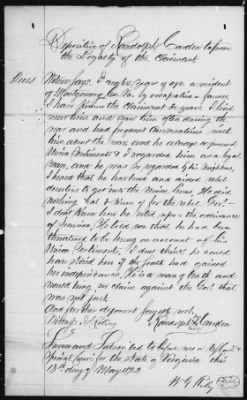 Deposition of Randolph Carden to prove
the Loyalty of the Claimant
Witness says, I am years of age a resident
of Montgomery Co. Va by occupation a farmer
I have known the Claimant years. I lived
near him and saw him often during the
war and had frequent conversations with
him about the war and he always expressed
Union Sentiments & I regarded him as a loyal
man, and he was so regarded by his neighbors,
I heard that he had and aided
deserters to get into the Union lines. He did
nothing that I know of for the rebel
I don't know how he voted upon the ordinance
of Secession. He told me that he had been
threatened on account of his
Union Sentiments. I don't think he could
have if the South had gained
her independence. He is a man of truth and
would bring no claim against the Govt. that
was not just.
And further deponent sayeth not.
Randolph Carden
Sworn and Subscribed to before me a
Special for the State of Virginia this
13th day of May 1873